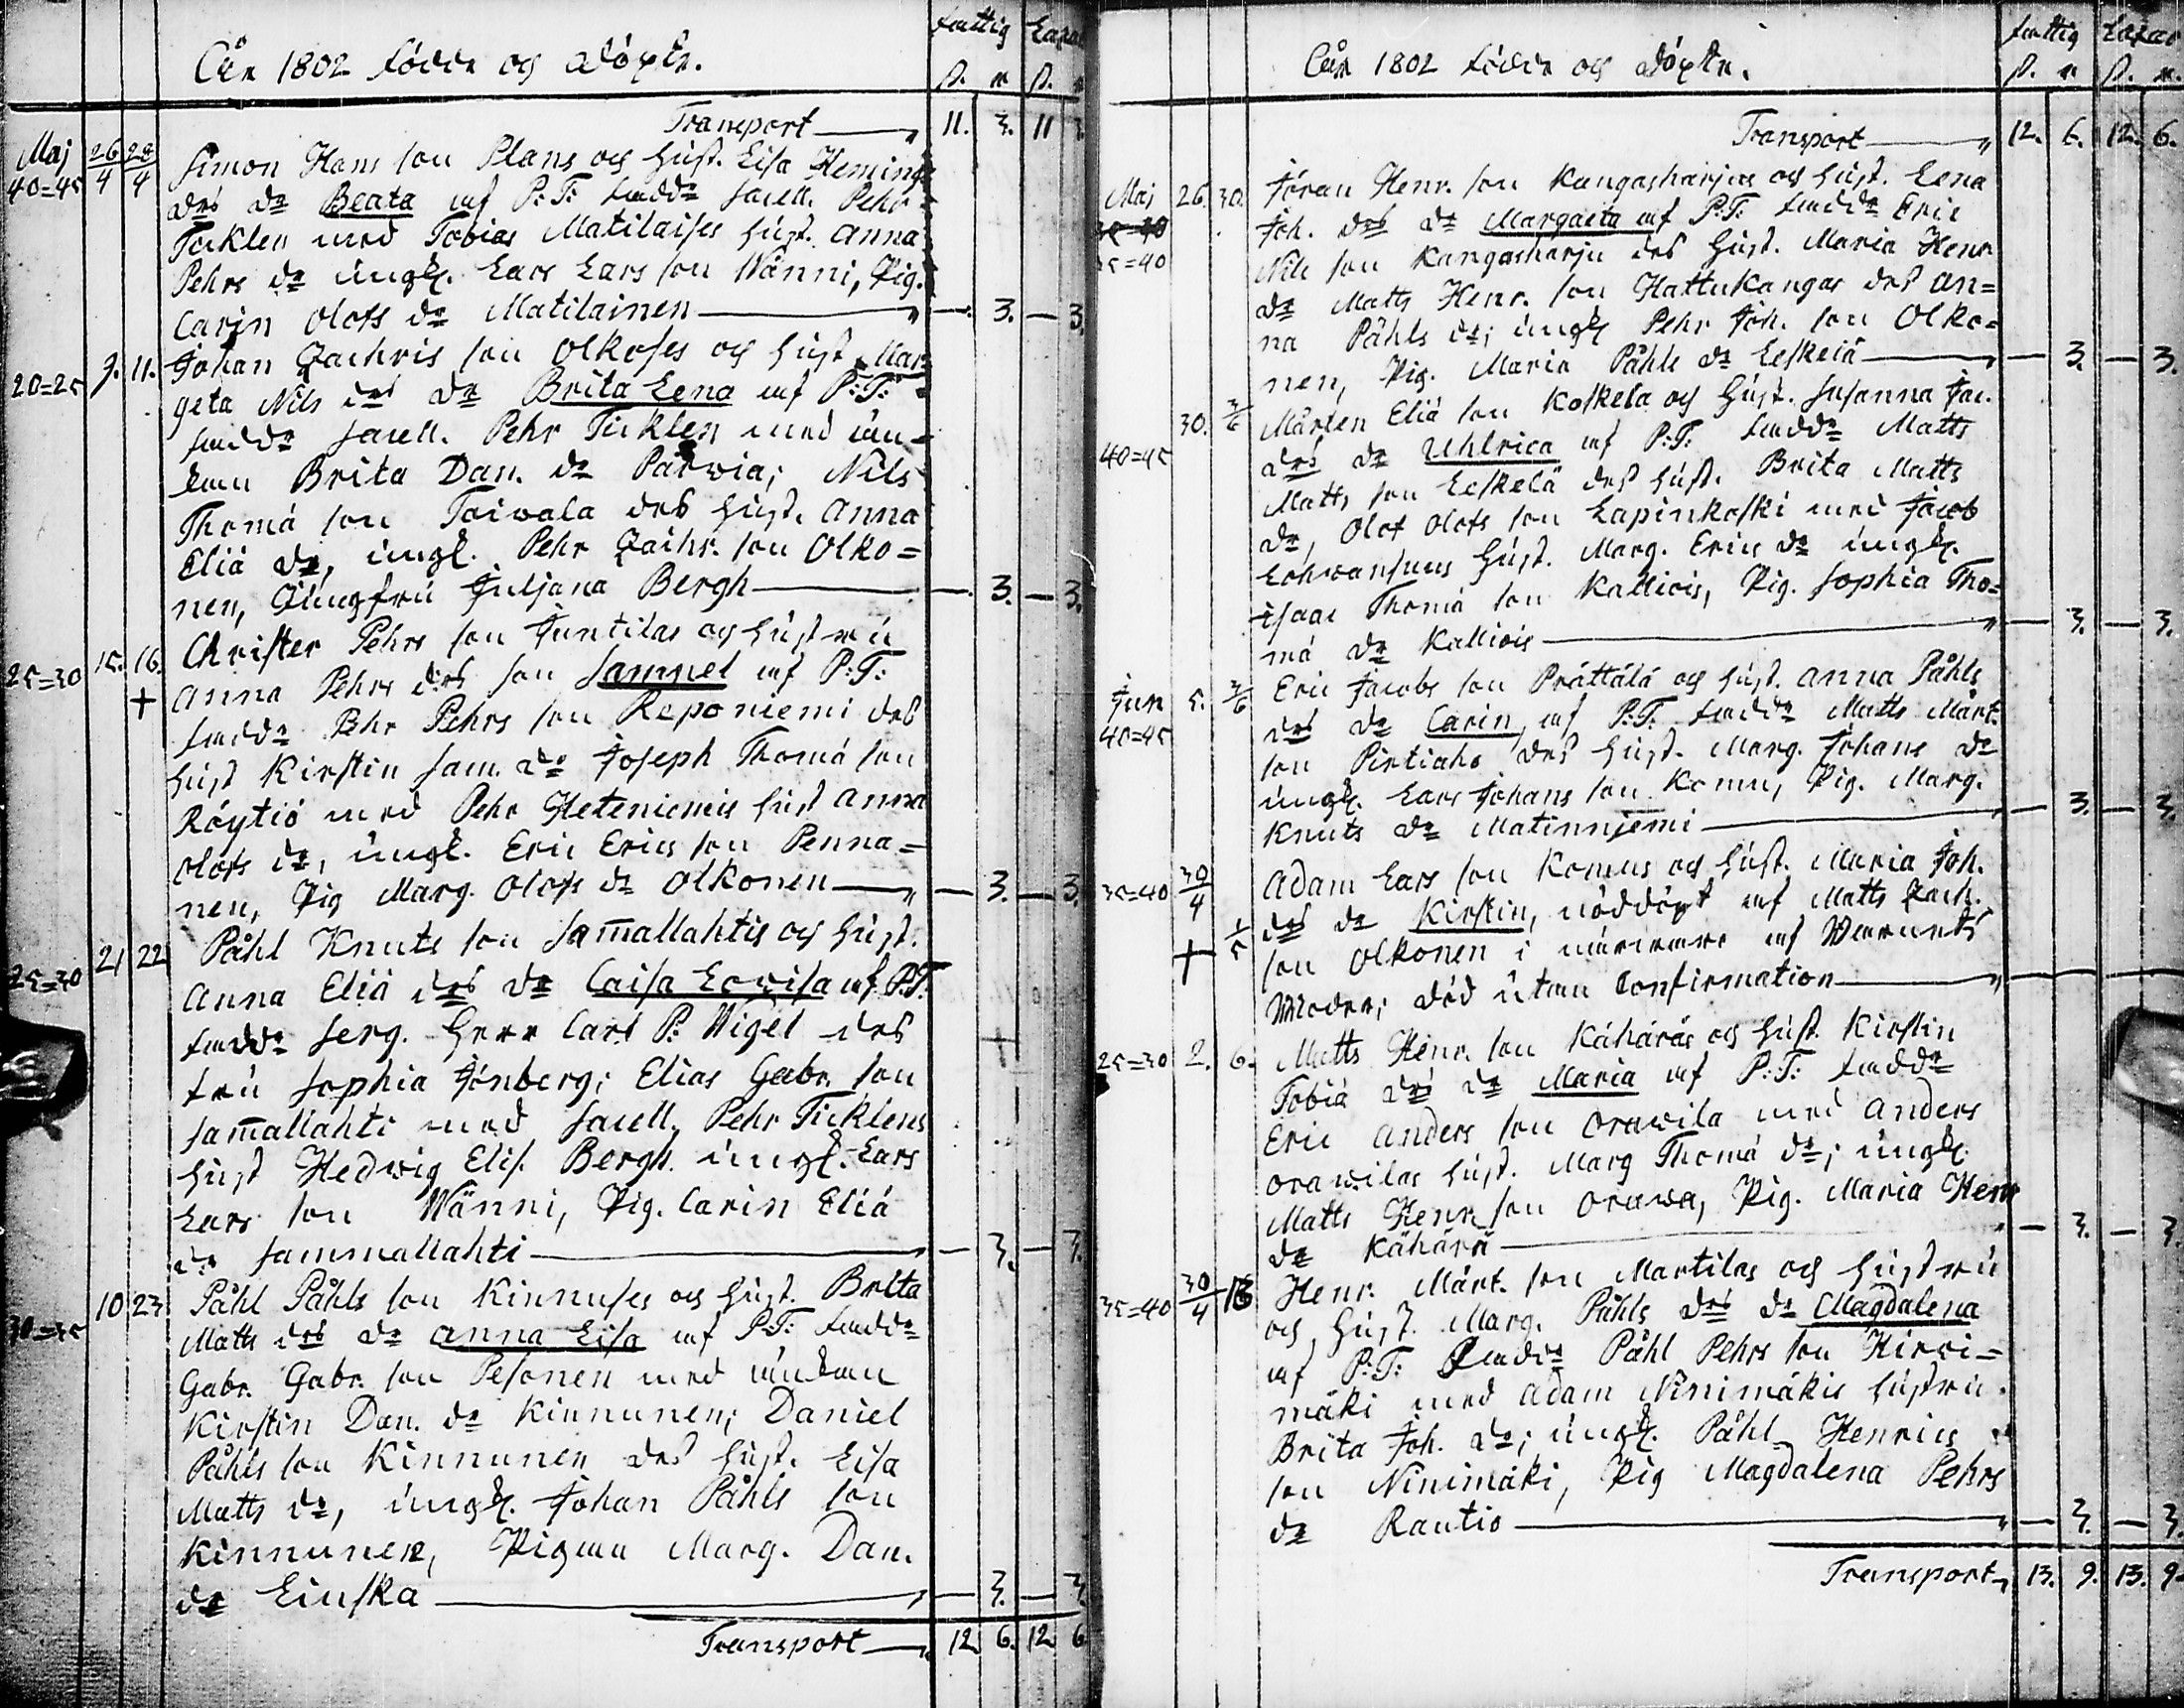 Åhr 1802 födde och döpte.
fattig Lazar
ß. r ß. r
Transport 11. 3. 11 3
Maj 26/4 28/4 Simon Hans son Plans och hust. Lisa Heming
40=45 des dr Beata af P:T: fadd: Saell. Pehr
Ticklen med Tobias Matilaises hust. Anna
Pehrs dr ungk. Lars Lars son Wänni, Pig.
Carin Olofs dr Matilainen — 3. — 3.
9. 11. Johan Zachris son Olkoses och hust Mar
20=25 geta Nils des dr Brita Lena af P:T:
fadd: Saell. Pehr Ticklen med än-
kan Brita Dan. dr Parwia; Nils
Thomä son Toiwala des hust. Anna
Eliä dr, ungk. Pehr Zachr. son Olko=
nen, Jungfru Juljana Bergh — 3. — 3.
15. 16. Christer Pehrs son Juntilas och hustru
25=30 + Anna Pehrs des son Samuel af P:T:
fadd: Pehr Pehrs son Reponiemi des
hust Kirstin Sam. dr Joseph Thomä son
Röytiö med Pehr Heteniemis hust Anna
Olofs dr, ungk. Eric Erics son Penna=
nen, Pig Marg. Olofs dr Olkonen — 3. — 3.
21 22 Påhl Knuts son Sam̅allahtis och hust.
25=30 Anna Eliä des dr Caisa Lovisa af P.T.
fadd: Serg. Herr Carl P. Wigel des
fru Sophia Jönberg; Elias Gabr. son
Sam̅allahti med Saell. Pehr Ticklens
hust Hedwig Elis. Bergh. ungk. Lars
Lars son Wänni, Pig. Carin Eliä
dr Sammallahti — 3. — 3.
10 23 Påhl Påhls son Kinnuses och hust. Brita
30=35 Matts des dr Anna Lisa af P.T: fadd:
Gabr. Gabr. son Pesonen med änkan
Kirstin Dan. dr Kinnunen; Daniel
Påhls son Kinnunen des hust. Lisa
Matts dr, ungk. Johan Påhls son
Kinnunen, Pigan Marg. Dan.
dr Linska — 3. — 3.
Transport 12. 6. 12. 6
Åhr 1802 födde och döpte.
fattig Lazar
ß. r ß. r.
Transport 12. 6. 12. 6.
Maj 26. 30. Jöran Henr. son Kangasharjus och hust. Lena
Joh. des dr Margaeta af P:T: fadd: Eric
35=40 Nils son Kangasharju des hust. Maria Henr
dr Matts Henr. son Hattukangas des An=
na Påhls dr; ungk Pehr Joh. son Olko=
nen, Pig. Maria Påhls dr Leskelä — 3. — 3.
30. 3/6 Mårten Eliä son Koskela och hust. Susanna Jac.
40=45 des dr Uhlrica af P:T: fadd: Matts
Matts son Leskelä des hust. Brita Matts
dr, Olof Olofs son Lapinkoski med Jacob
Lohwansuus hust. Marg. Erics dr ungk.
Isaac Thomä son Kalliois, Pig. Sophia Tho=
mä dr Kalliois — 3. — 3.
Jun 5. 3/6 Eric Jacobs son Prättälä och hust. Anna Påhls
40=45 des dr Carin, af P:T: fadd: Matts Mårt.
son Pirtiaho des hust. Marg. Johans dr
ungk. Lars Johans son Komu, Pig. Marg.
Knuts dr Matinniemi — 3. — 3.
35=40 30/4 Adam Lars son Komus och hust. Maria Joh.
1/5 des dr Kirstin, nöddöpt af Matts Zach.
+ son Olkonen i närvaro af Barnets
Moder; död utan Confirmation
25=30 2. 6. Matts Henr. son Kähäräs och hust. Kirstin
Tobiä des dr Maria af P:T: fadd:
Eric Anders son Orawila med Anders
Orawilas hust. Marg Thomä dr; ungk.
Matts Henr. son Orawa, Pig. Maria Henr
dr Kähärä — 3. — 3.
35=40 30/4 16 Henr. Mårt. son Martilas och hustru
och hust. Marg. Påhls des dr Magdalena
af P:T: fadd: Påhl Pehrs son Hirvi=
mäki med Adam Ninimäkis hustru.
Brita Joh. dr; ungk. Påhl Henrics
son Ninimäki, Pig Magdalena Pehrs
dr Rautio — 3. — 3
Transport 13. 9. 13. 9.